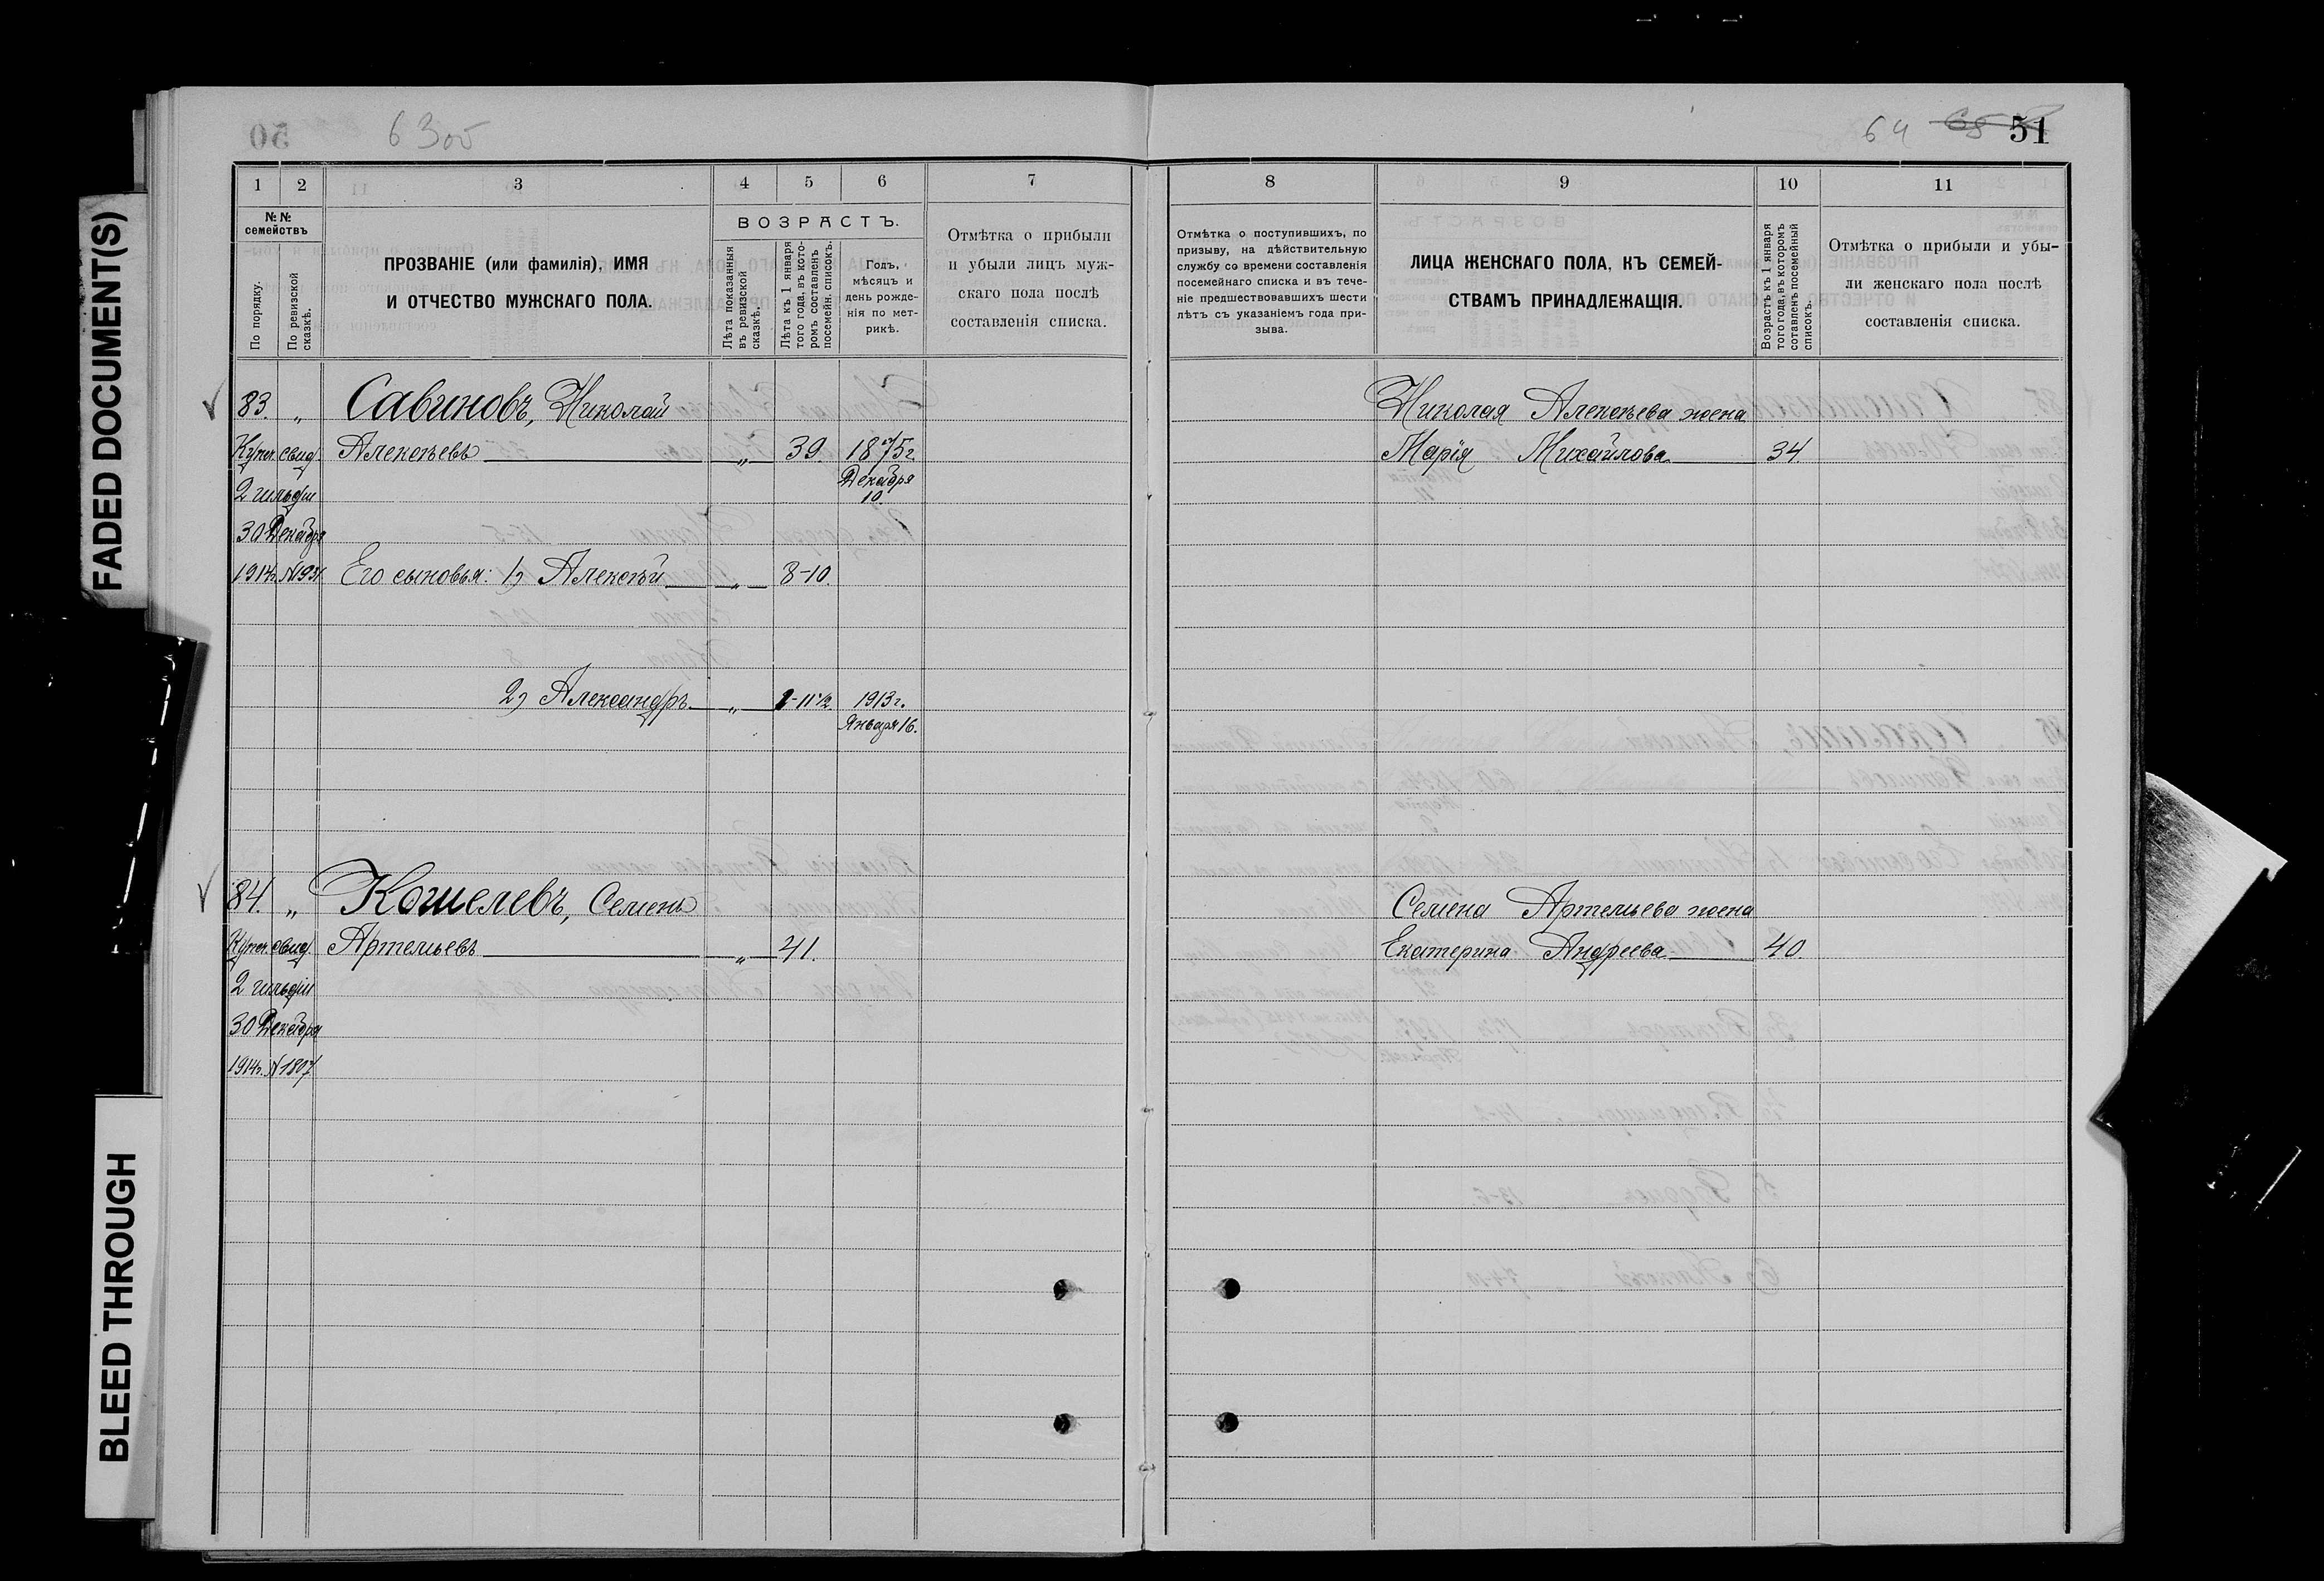 FADED DOCUMENT(S)
BLEED THROUGH
50
63об
1 2 3 4 5 6 7
№ № семействъ
По порядку.
По ревизской сказкѣ.
ПРОЗВАНІЕ (или фамилія), ИМЯ
И ОТЧЕСТВО МУЖСКАГО ПОЛА.
ВОЗРАСТЪ.
Лѣта показанныя
въ ревизской
сказкѣ.
Лѣта къ 1 января
того года, въ кото-
ромъ составленъ
посемейн. списокъ.
Годъ,
мѣсяцъ и
день рожде-
нія по мет-
рикѣ.
Отмѣтка о прибыли
и убыли лицъ муж-
скаго пола послѣ
составленія списка.
83. „ Савиновъ, Николай
Купеч. свид. Алексѣевъ „ 39. 1875 г.
2 гильдіи Декабря
10.
30 Декабря
1914г. Его сыновья: 1) Алексѣй „ 8-10.
2) Александръ „ 1-11½ 1913 г.
Января 16.
84. „ Кошелевъ, Семенъ
Купеч. свид. Артемьевъ „ 41.
2 гильдіи
30 Декабря
1914г. № 1807
64 65 51
8 9 10 11
Отмѣтка о поступившихъ, по
призыву, на дѣйствительную
службу со времени составленія
посемейнаго списка и въ тече-
ніе предшествовавшихъ шести
лѣтъ съ указаніемъ года при-
зыва.
ЛИЦА ЖЕНСКАГО ПОЛА, КЪ СЕМЕЙ-
СТВАМЪ ПРИНАДЛЕЖАЩІЯ.
Возрастъ къ 1 января
того года, въ которомъ
составленъ посемейный
списокъ.
Отмѣтка о прибыли и убы-
ли женскаго пола послѣ
составленія списка.
Николая Алексѣева жена
Марія Михайлова 34.
Семена Артемьева жена
Екатерина Андреева 40.